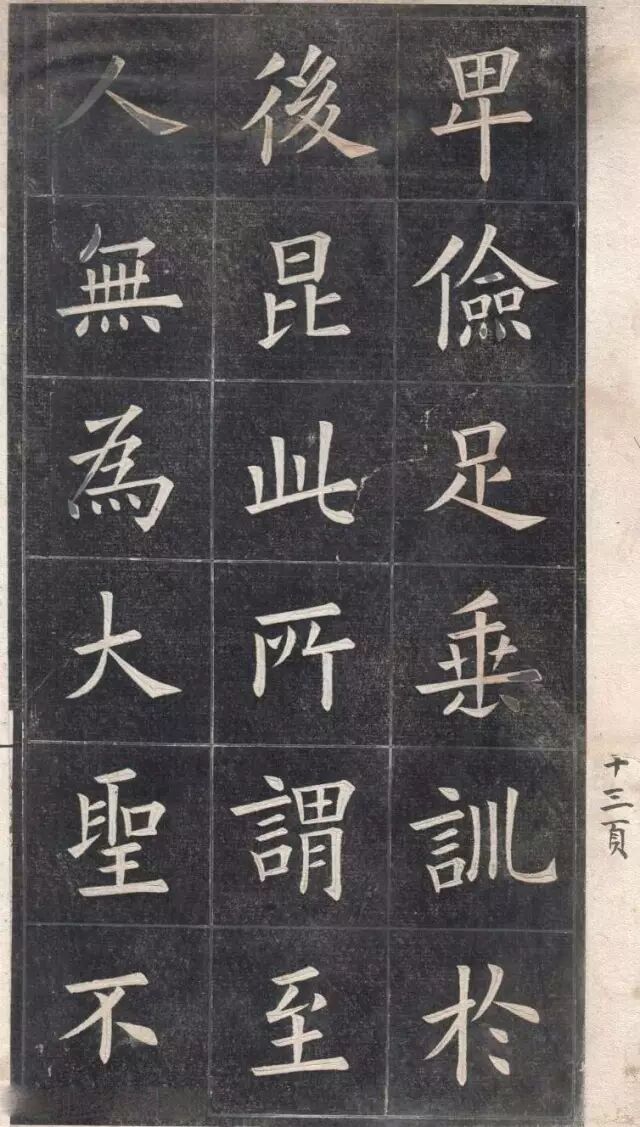 卑儉足垂訓於
後昆此所謂至
人無為大聖不
十三頁